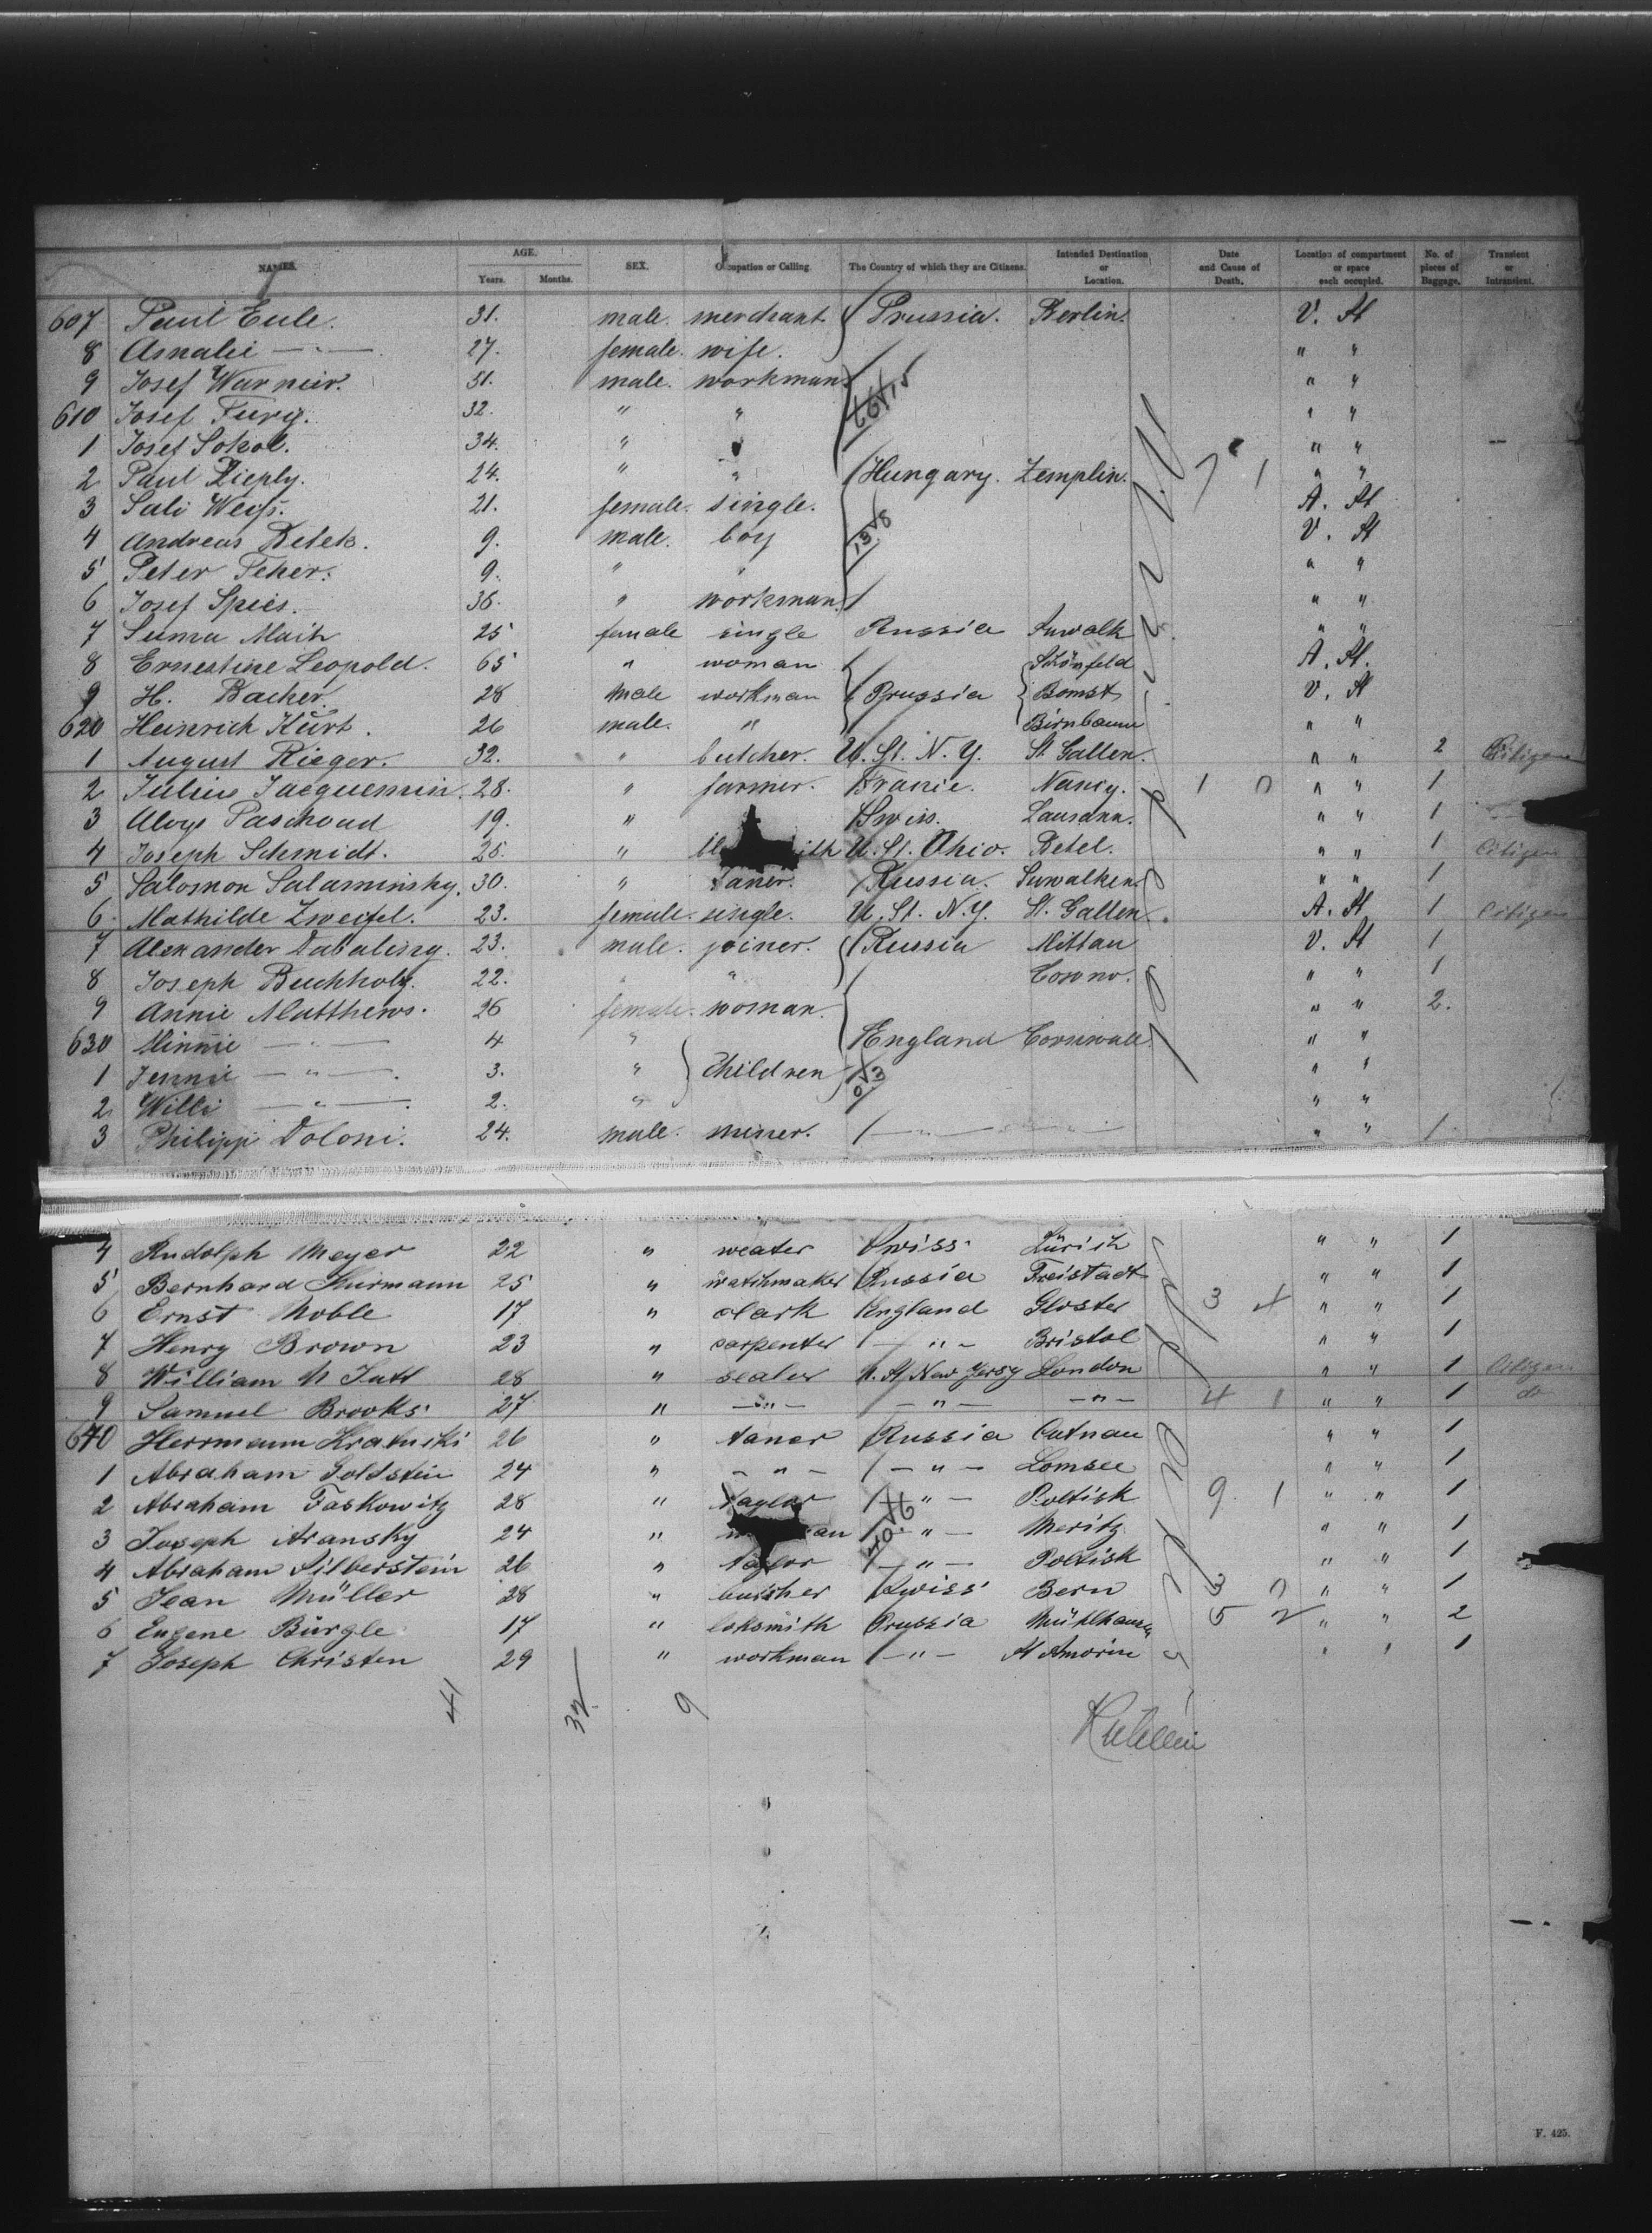 NAMES. AGE. Years. Months. SEX. Occupation or Calling. The Country of which they are Citizens. Intended Destination or Location. Date and Cause of Death. Location of compartment or space each occupied. No. of pieces of Baggage. Transient or Intransient.
607 Paul Eule. 31. male. merchant. Prussia. Berlin. V. St
8 Amalie — " — 27. female. wife. " "
9 Josef Warneir. 31. male. workman " "
610 Josef Fury. 32. " " " "
1 Josef Sokol. 34. " " " "
2 Paul Zieply. 24. " " Hungary. Zemplin. 7 1 " "
3 Sali Weiss. 21. female. single. A. St
4 Andreas Retek. 9. male. boy V. St
5 Peter Feher. 9. " " " "
6 Josef Spies. 36. " workman " "
7 Suma Mait 25 female single Russia Suwalk " "
8 Ernestine Leopold. 65 " woman Schönfeld A. St.
9 H. Bacher 28 male workman Prussia Bomst V. St
620 Heinrich Kurt. 26 male. " Birnbaum " "
1 August Rieger. 32. " butcher. U. St. N. Y. St. Gallen. " " 2 Citizen
2 Julius Jacquemin. 28. " farmer. France. Nancy. 1 0 " " 1
3 Aloys Paschoud 19. " Swiss. Lausann. " " 1
4 Joseph Schmidt. 25. " bl ith U. St. Ohio. Betel. " " 1 Citizen
5 Salomon Salaminsky. 30. " Taner. Russia. Suwalken. " " 1
6. Mathilde Zweifel. 23. female. single. U. St. N. Y. St. Gallen. A. St 1 Citizen
7 Alexander Dabalsny. 23. male. joiner. Russia Mittau V. St 1
8 Joseph Buchholz. 22. " " Cowno. " " 1
9 Annie Matthews. 26 female. woman. " " 2.
630 Minnie — " — 4 " England Cornwall. " "
1 Jennie — " —. 3. " Children " "
2 Willi — " —. 2. " " "
3 Philipp Doloni. 24. male. miner. — " — " — " " 1
4 Rudolph Meyer 22 " weater Swiss Zürich " " 1
5 Bernhard Thurmann 25 " watchmaker Russia Freistadt " " 1
6 Ernst Noble 17 " clark England Gloster 3 4 " " 1
7 Henry Brown 23 " carpenter — " — Bristol " " 1
8 William 28 " sealer U. St. New Jersy London " " 1 Citizen
9 Samuel Brooks 27 " — " — — " — — " — 4 1 " " 1 do
640 Herrmann Kratuski 26 " taner Russia Cutnau " " 1
1 Abraham Goldstein 24 " — " — — " — Lomsee " " 1
2 Abraham Faskowitz 28 " taylor — " — Poltisk 9. 1 " " 1
3 Joseph Aransky 24 " an — " — Meritz " " 1
4 Abraham Silberstein 26 " taylor — " — Poltisk " " 1
5 Jean Müller 28 " butsher Swiss Bern 3 0 " " 1
6 Eugene Bürgle 17 " loksmith Prussia Mühlhausen 5 2 " " 2
7 Joseph Christen 29 " workman — " — St Amorin " " 1
41 32 9
F. 425.